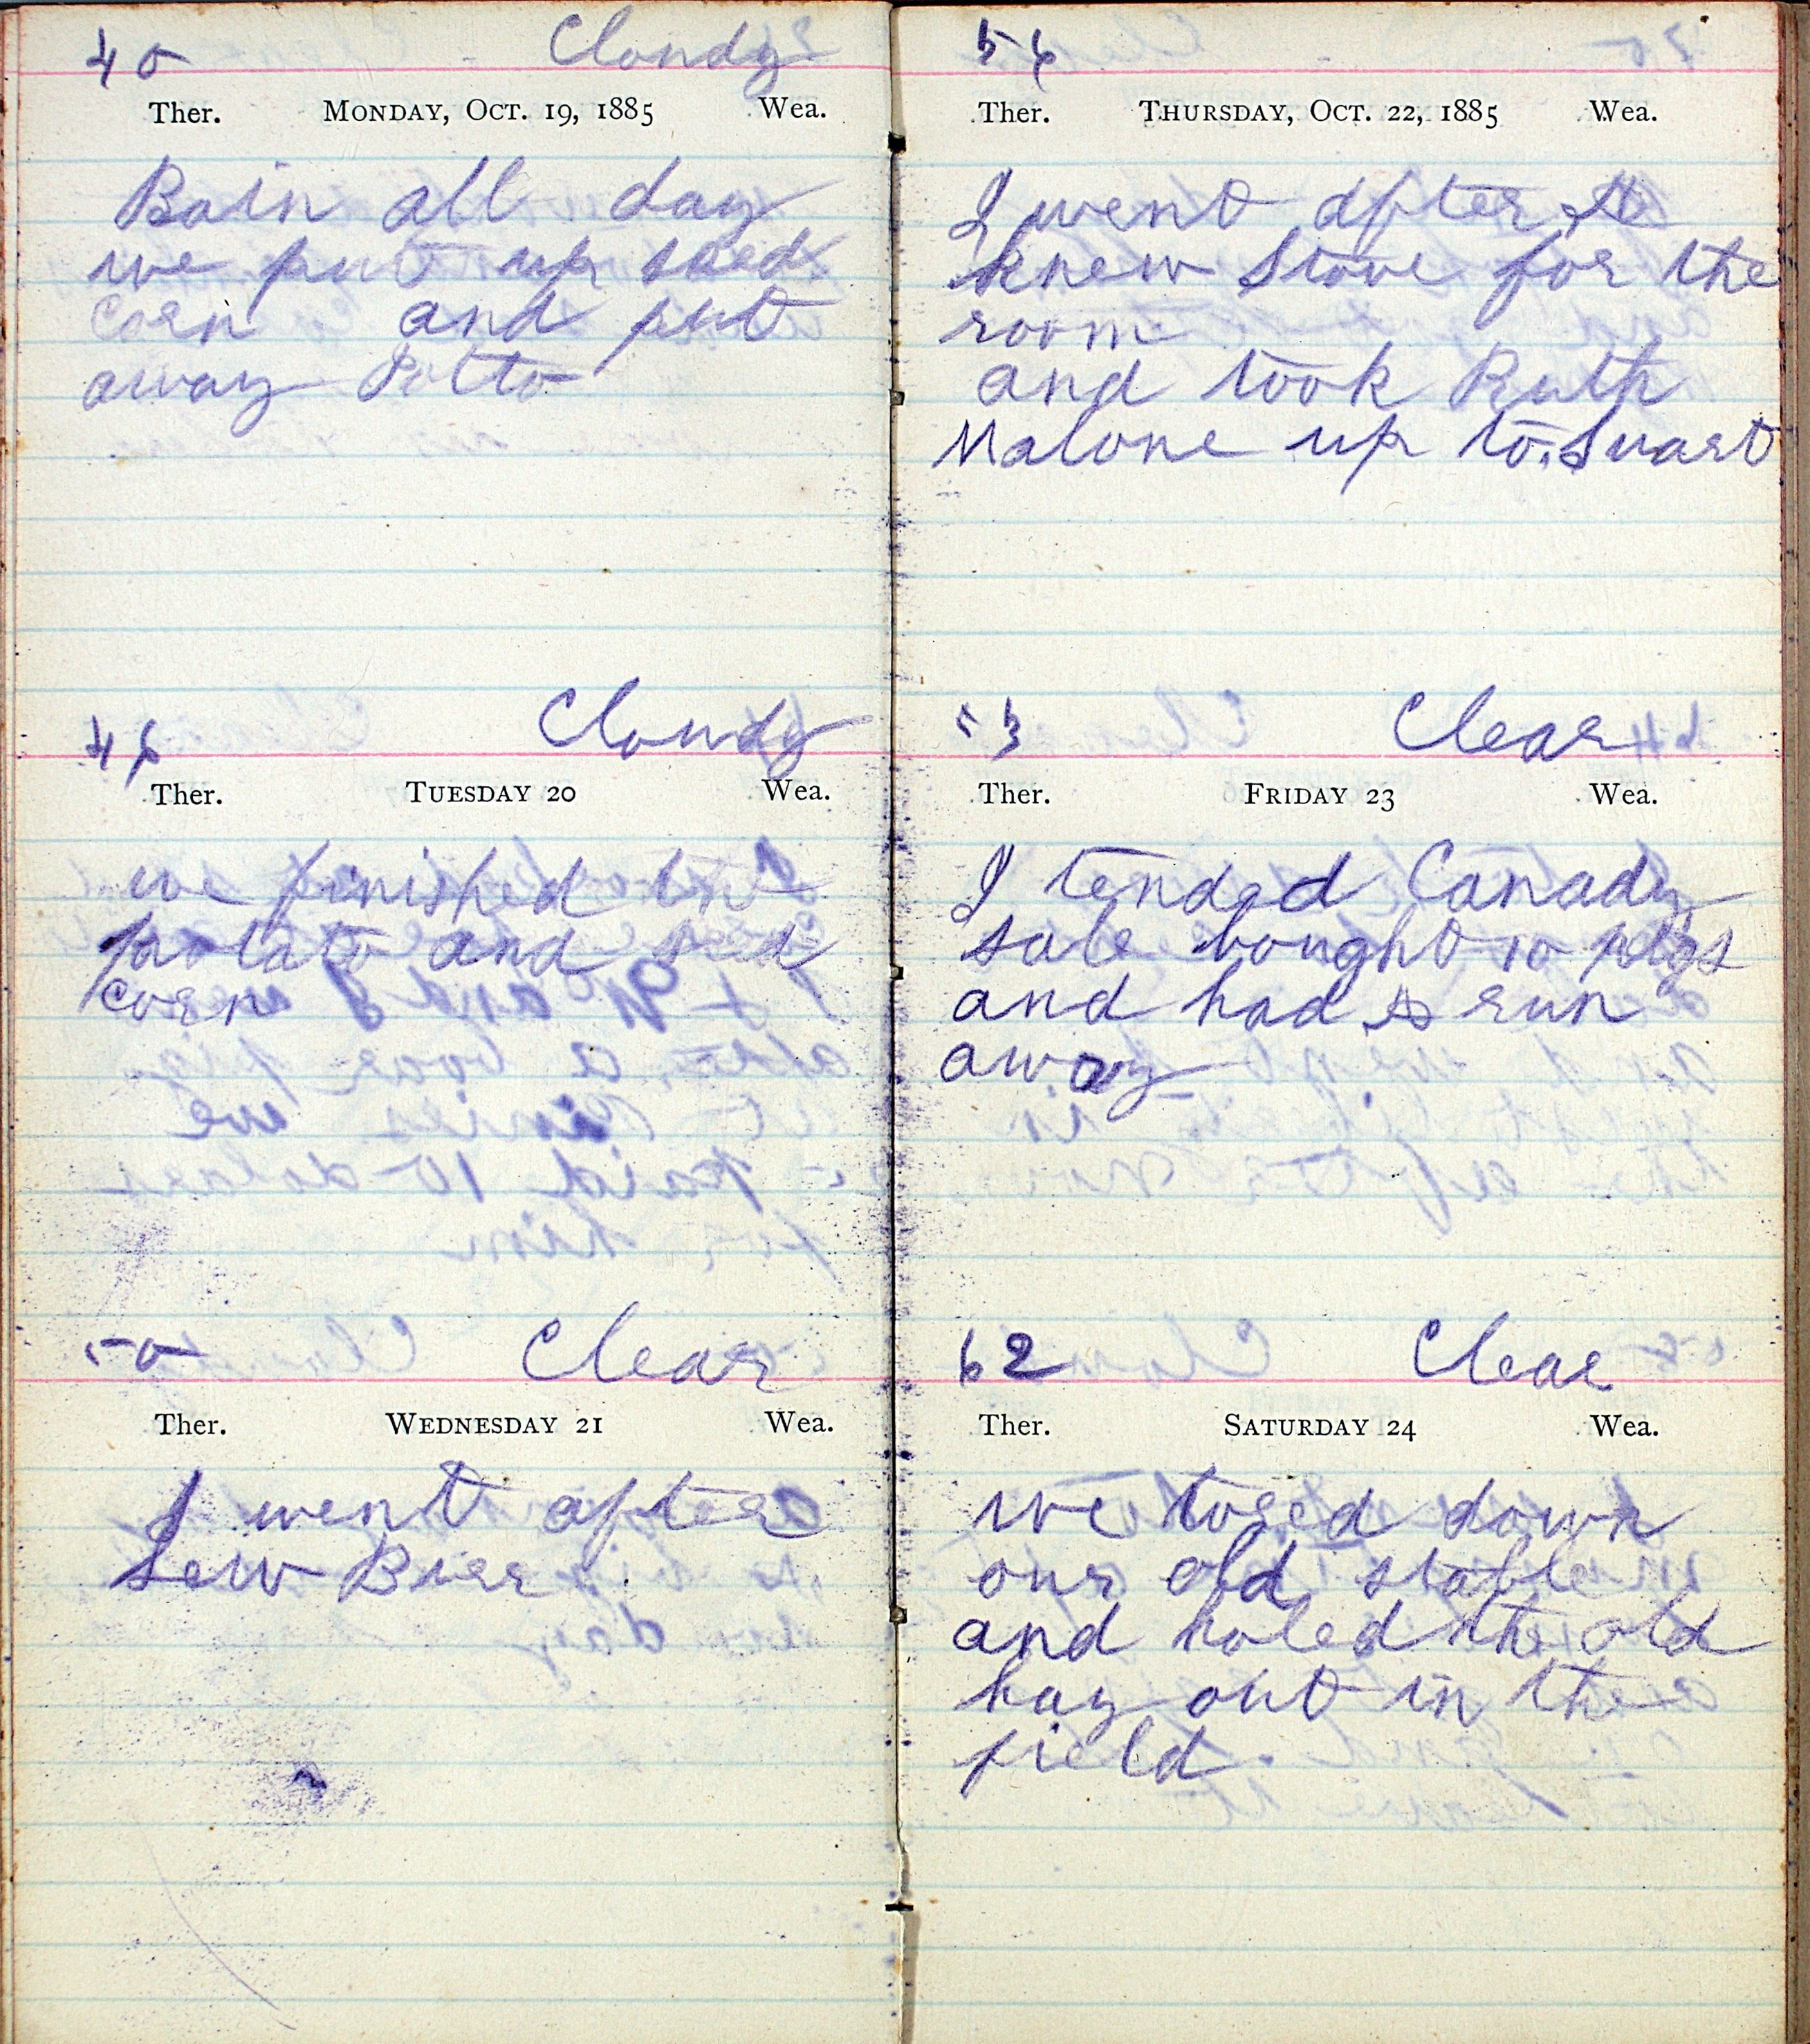 40 Cloudy
Ther. Monday, Oct. 19, 1885 Wea.
Rain all day
we put up seed
corn and put
away Potto
46 Cloudy
Ther. Tuesday 20 Wea.
we finished
potato and sed
corn
50 Clear
Ther. Wednesday 21 Wea.
I went after
Lew Bier
56
Ther. Thursday, Oct. 22, 1885 Wea.
I went after A
knew Stove for the
room
and took Ruth
Malone up to
53 Clear
Ther. Friday 23 Wea.
I tended Canady
sale bought 10 pigs
and had a run
away
62 Clear
Ther. Saturday 24 Wea.
we tored down
our old stable
and holed the old
hay out in the
field.